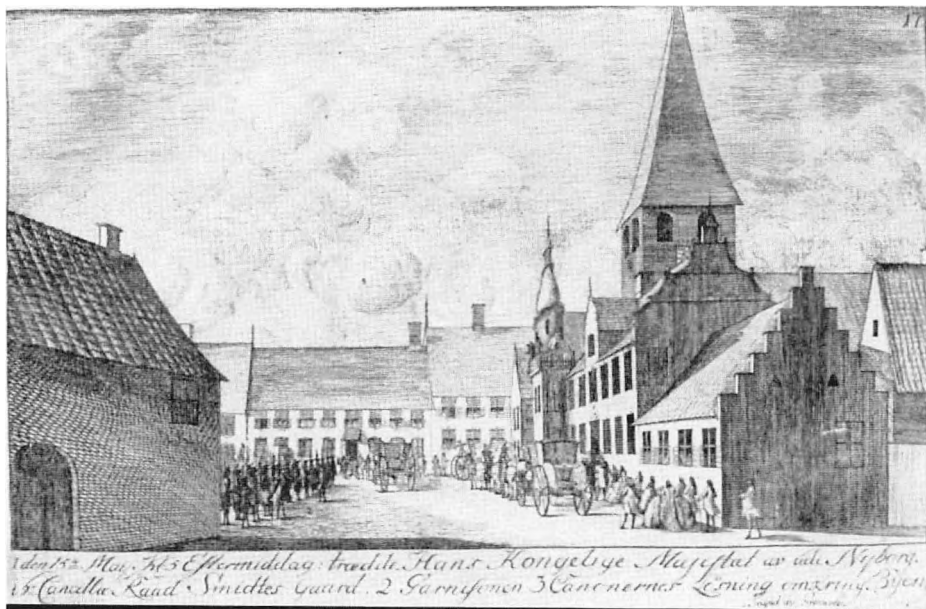 17
1 den 15de May. Kl: 5 Eftermiddag: trædde Hans Kongelige Majestat av udi Nyborg.
Cancellie Raad Smidtes Gaard. 2 Garnisonen 3 Canonernes Løsning omzring Byen